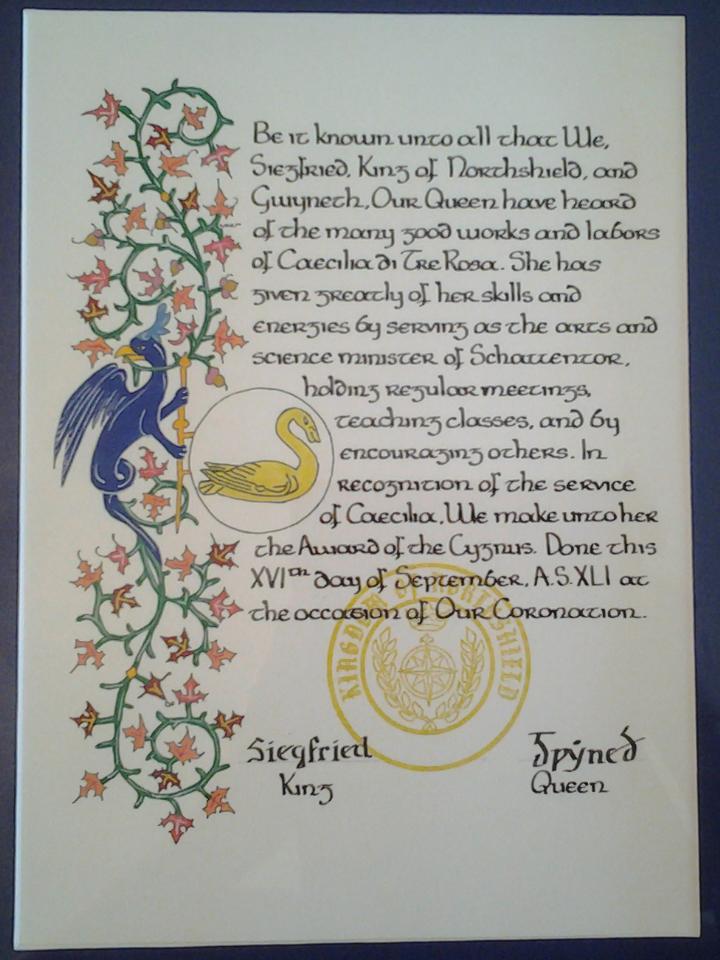 Be it known unto all that We,
Siegfried, King of Northshield, and
Gwyneth, Our Queen have heard
of the many good works and labors
of Caecilia di Tre Rosa. She has
given greatly of her skills and
energies by serving as the arts and
science minister of Schattentor,
holding regular meetings,
teaching classes, and by
encouraging others. In
recognition of the service
of Caecilia, We make unto her
the Award of the Cygnus. Done this
XVIth day of September, A.S. XLI at
the occasion of Our Coronation.
KINGDOM OF NORTHSHIELD
Siegfried
King
Queen